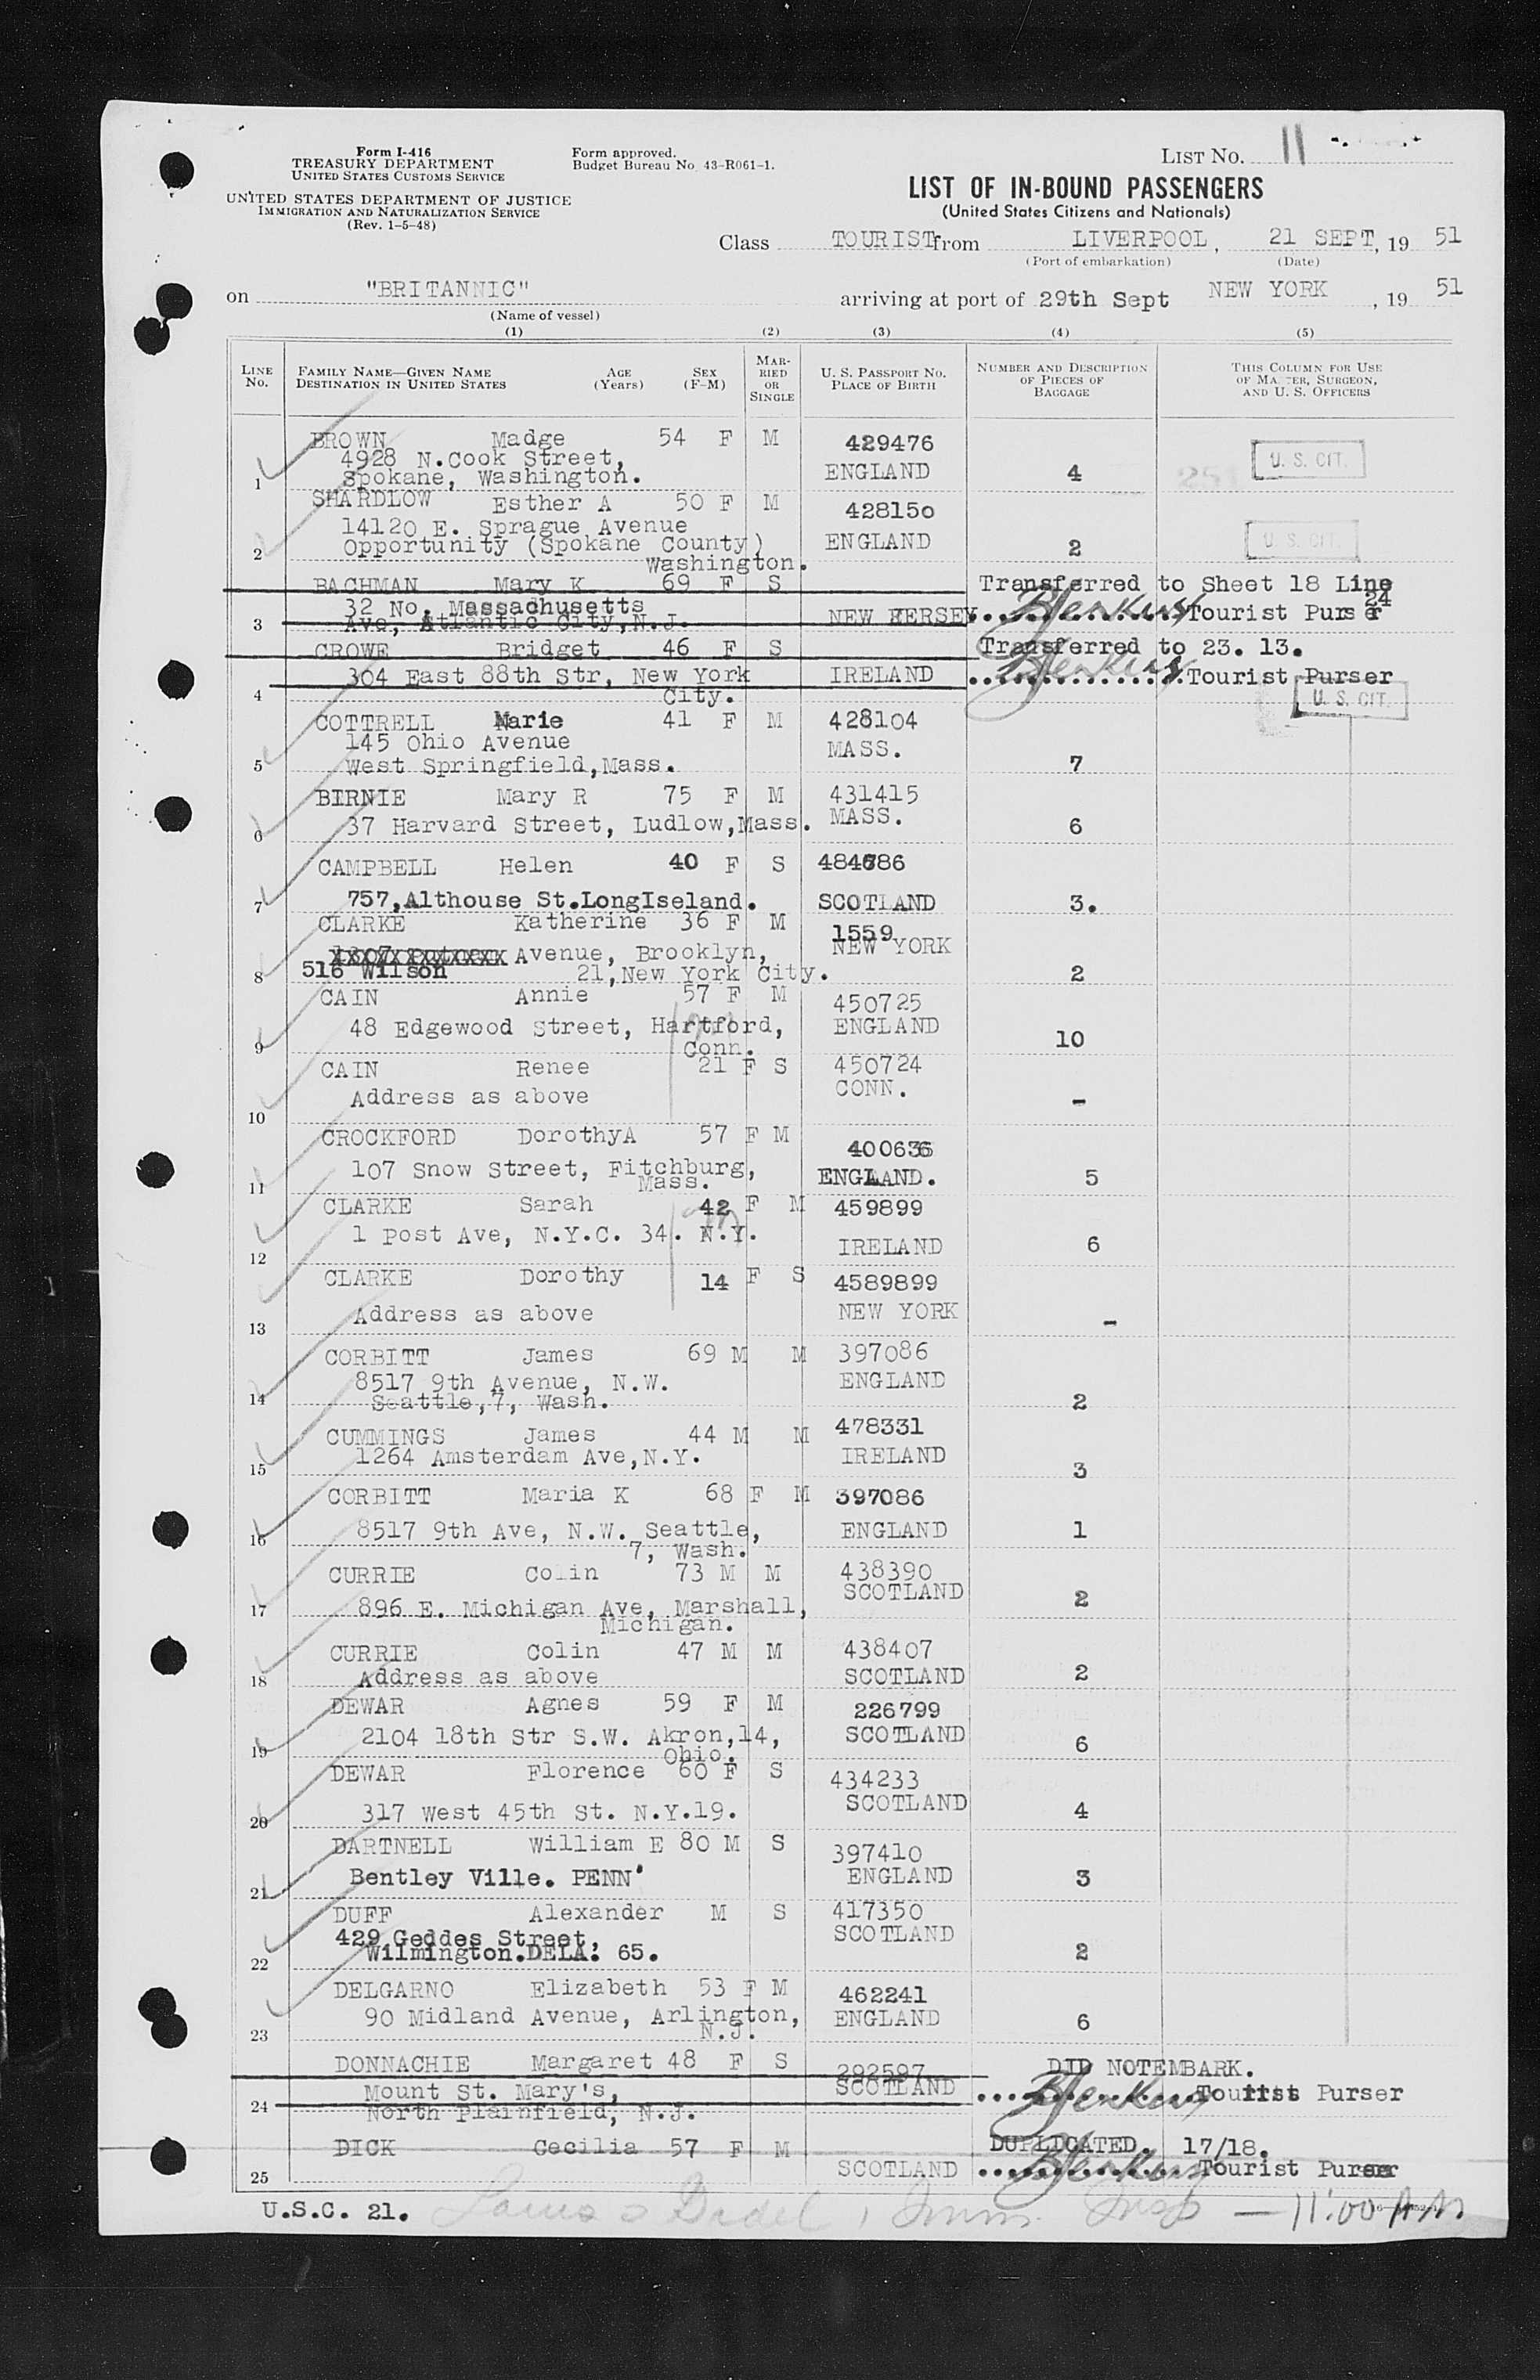 Form I-416
TREASURY DEPARTMENT
UNITED STATES CUSTOMS SERVICE
UNITED STATES DEPARTMENT OF JUSTICE
IMMIGRATION AND NATURALIZATION SERVICE
(Rev. 1-5-48)
Form approved.
Budget Bureau No. 43-R061-1.
LIST No. 11
LIST OF IN-BOUND PASSENGERS
(United States Citizens and Nationals)
Class TOURIST from LIVERPOOL, 21 SEPT, 19 51
(Port of embarkation) (Date)
on "BRITANNIC" arriving at port of 29th Sept NEW YORK, 19 51
(Name of vessel)
(1) (2) (3) (4) (5)
LINE No. FAMILY NAME—GIVEN NAME DESTINATION IN UNITED STATES AGE (Years) SEX (F-M) MARRIED OR SINGLE U. S. PASSPORT No. PLACE OF BIRTH NUMBER AND DESCRIPTION OF PIECES OF BAGGAGE THIS COLUMN FOR USE OF MASTER, SURGEON, AND U. S. OFFICERS
BROWN Madge 54 F M 429476
4928 N.Cook Street,
1 Spokane, Washington. ENGLAND 4 U. S. CIT.
SHARDLOW Esther A 50 F M 428150
14120 E. Sprague Avenue
2 Opportunity (Spokane County) ENGLAND 2 U. S. CIT.
Washington.
BACHMAN Mary K 69 F S Transferred to Sheet 18 Line 24
32 No. Massachusetts
3 Ave, Atlantic City,N.J. NEW JERSEY BJenkins Tourist Purser
CROWE Bridget 46 F S Transferred to 23. 13.
304 East 88th Str, New York IRELAND BJenkins Tourist Purser
4 City. U. S. CIT.
COTTRELL Marie 41 F M 428104
145 Ohio Avenue MASS.
5 West Springfield,Mass. 7
BIRNIE Mary R 75 F M 431415
6 37 Harvard Street, Ludlow,Mass. MASS. 6
CAMPBELL Helen 40 F S
7 757,Althouse St.LongIseland. SCOTLAND 3.
CLARKE Katherine 36 F M 1559
Avenue, Brooklyn, NEW YORK
8 516 Wilson 21,New York City. 2
CAIN Annie 57 F M 450725
9 48 Edgewood Street, Hartford, ENGLAND 10
Conn.
CAIN Renee 21 F S 450724
10 Address as above CONN. -
CROCKFORD DorothyA 57 F M 400636
11 107 Snow Street, Fitchburg, ENGLAND. 5
Mass.
CLARKE Sarah 42 F M 459899
12 1 Post Ave, N.Y.C. 34. N.Y. IRELAND 6
CLARKE Dorothy 14 F S 4589899
13 Address as above NEW YORK -
CORBITT James 69 M M 397086
8517 9th Avenue, N.W. ENGLAND
14 Seattle,7, Wash. 2
CUMMINGS James 44 M M 478331
15 1264 Amsterdam Ave,N.Y. IRELAND 3
CORBITT Maria K 68 F M 397086
16 8517 9th Ave, N.W. Seattle, ENGLAND 1
7, Wash.
CURRIE Colin 73 M M 438390
17 896 E. Michigan Ave, Marshall, SCOTLAND 2
Michigan.
CURRIE Colin 47 M M 438407
18 Address as above SCOTLAND 2
DEWAR Agnes 59 F M 226799
19 2104 18th Str S.W. Akron,14, SCOTLAND 6
Ohio.
DEWAR Florence 60 F S 434233
20 317 West 45th St. N.Y.19. SCOTLAND 4
DARTNELL William E 80 M S 397410
21 Bentley Ville. PENN' ENGLAND 3
DUFF Alexander M S 417350
429 Geddes Street, SCOTLAND
22 Wilmington.DELA: 65. 2
DELGARNO Elizabeth 53 F M 462241
23 90 Midland Avenue, Arlington, ENGLAND 6
N.J.
DONNACHIE Margaret 48 F S 292597 DID NOTEMBARK.
Mount St. Mary's, SCOTLAND BJenkins Tourist Purser
24 North Plainfield, N.J.
DICK Cecilia 57 F M DUPLICATED. 17/18.
25 SCOTLAND BJenkins Tourist Purser
U.S.C. 21. Imm. Insp — 11:00 A.M.